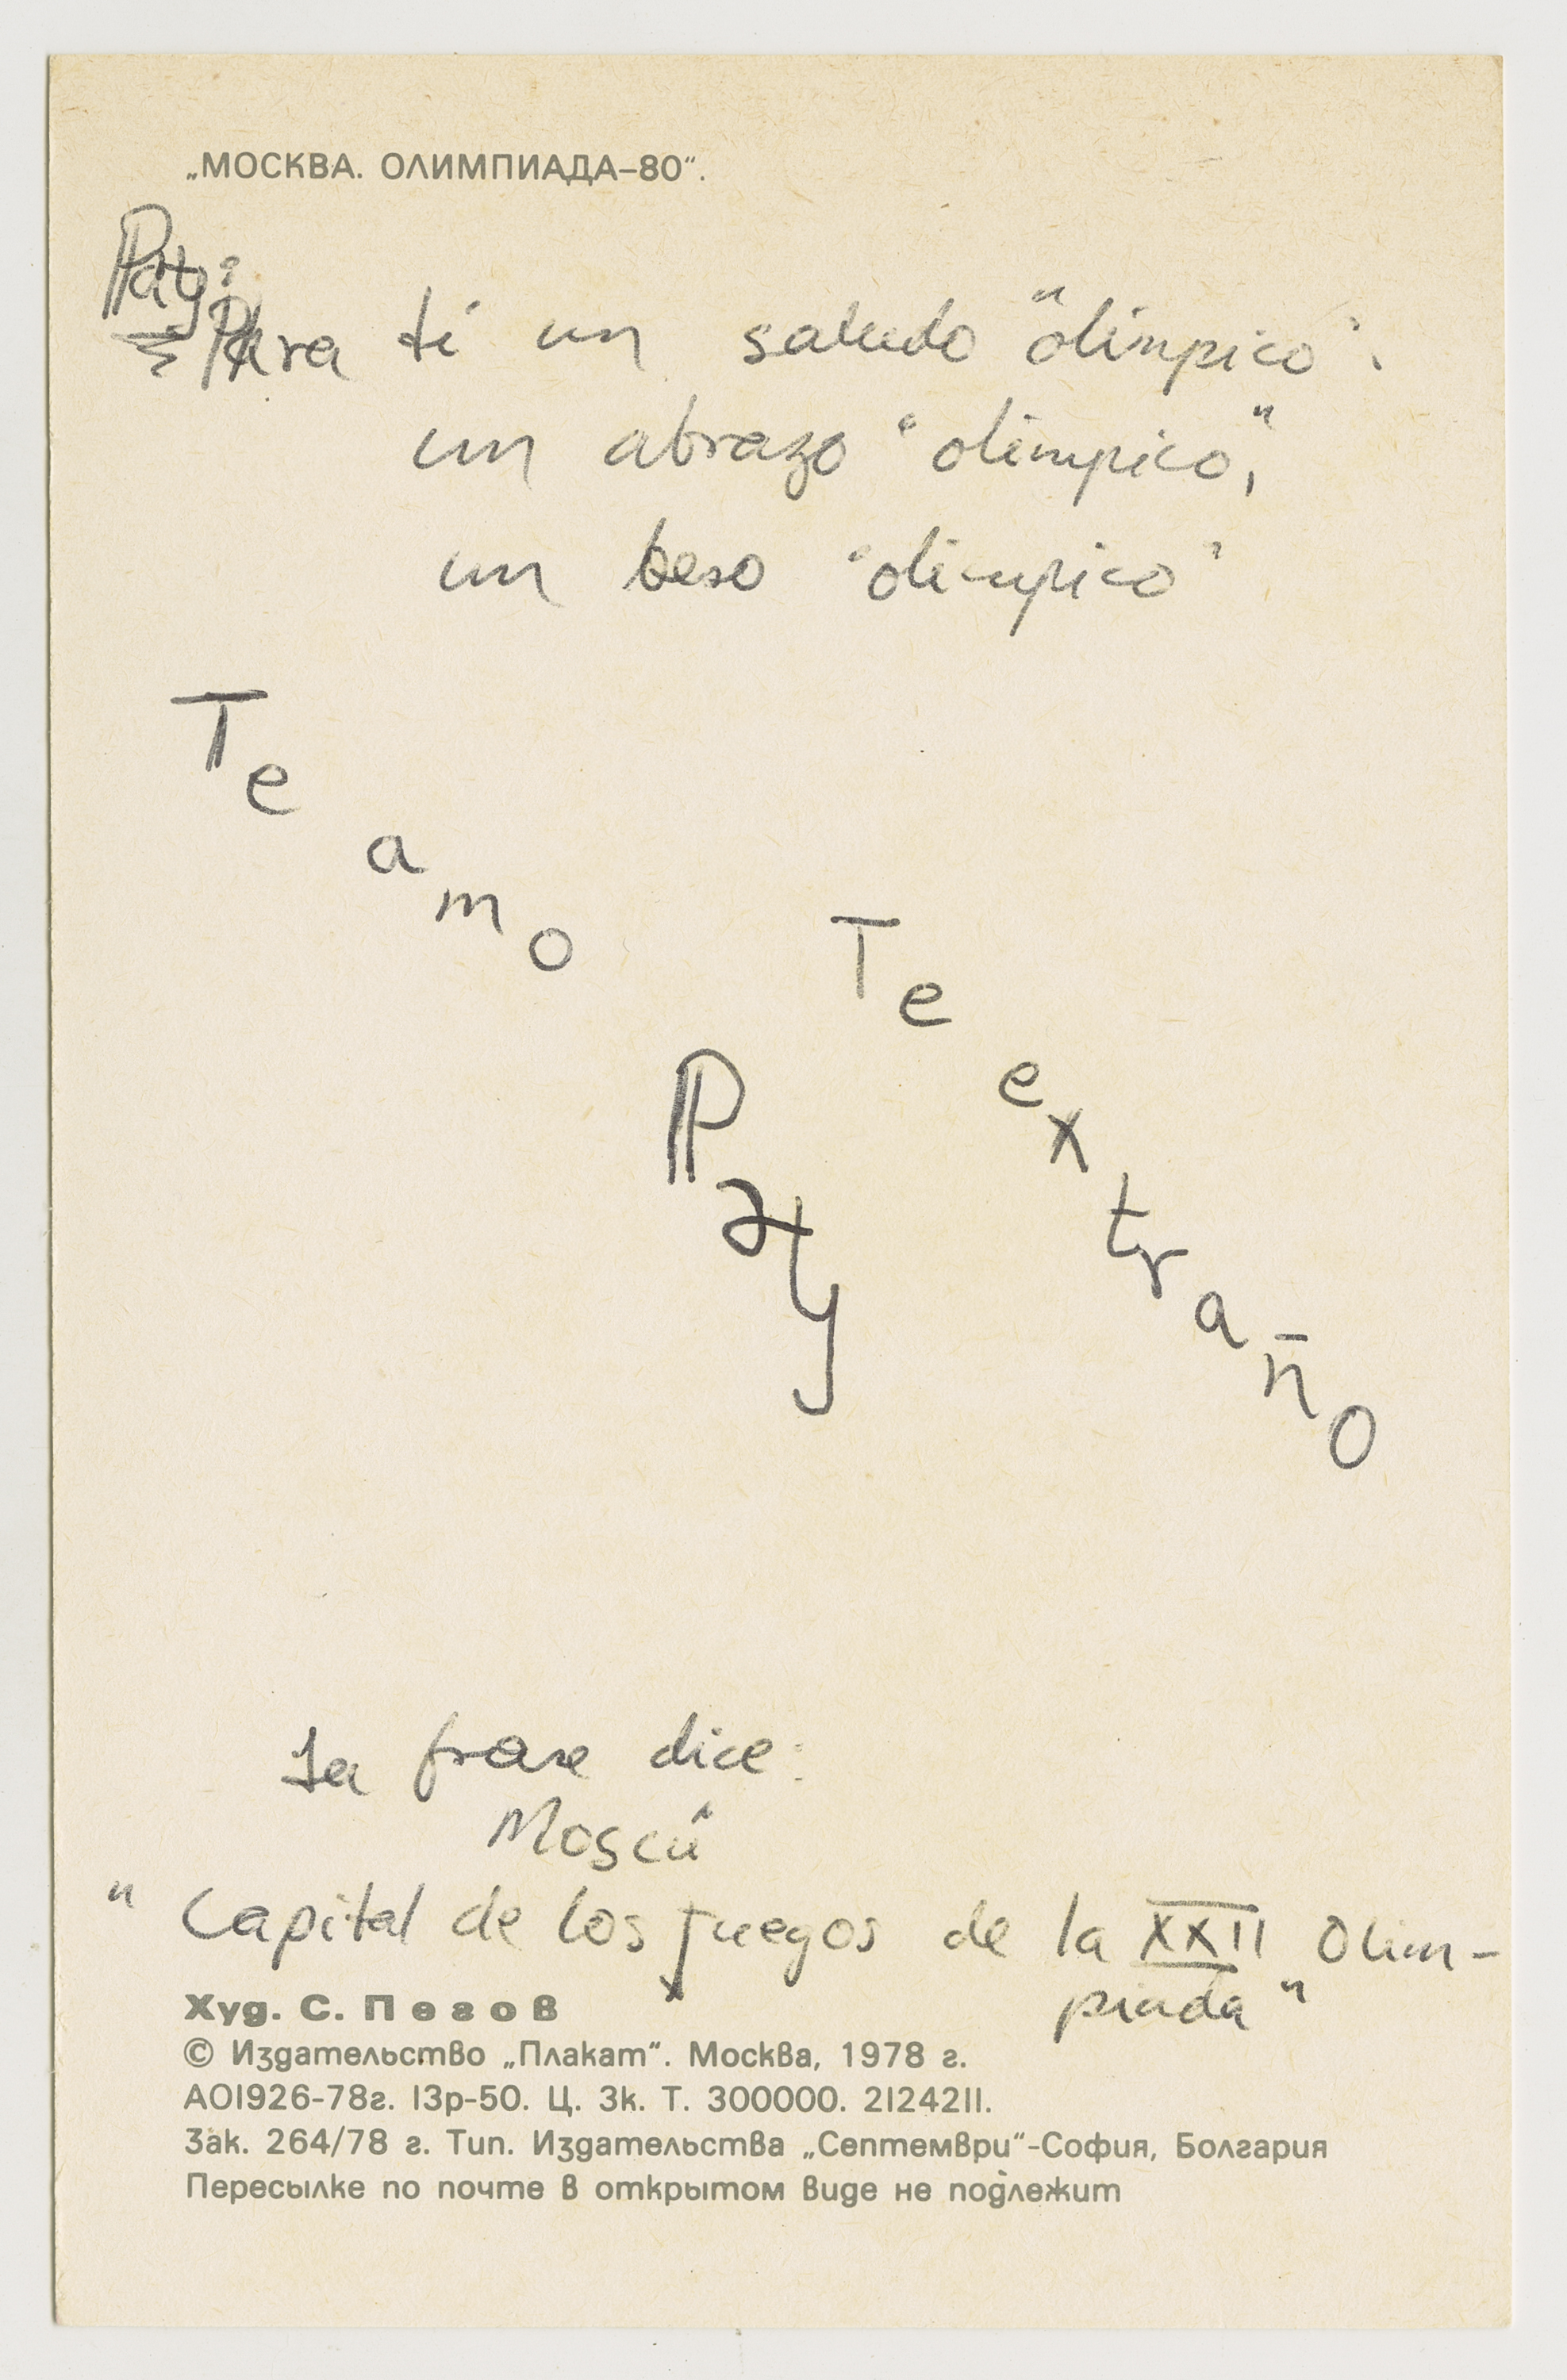 „МОСКВА. ОЛИМПИАДА–80“.
Paty:
Para ti un saludo "olímpico".
un abrazo "olimpico,"
un beso "olimpico"
Te amo
Te extraño
Paty
La frase dice:
Moscú
" Capital de los juegos de la XXII Olim-
piada "
Худ. С. Пегов
© Издательство „Плакат“. Москва, 1978 г.
АО1926-78г. 13р-50. Ц. 3к. Т. 300000. 2124211.
Зак. 264/78 г. Тип. Издательства „Септември“-София, Болгария
Пересылке по почте в открытом виде не подлежит